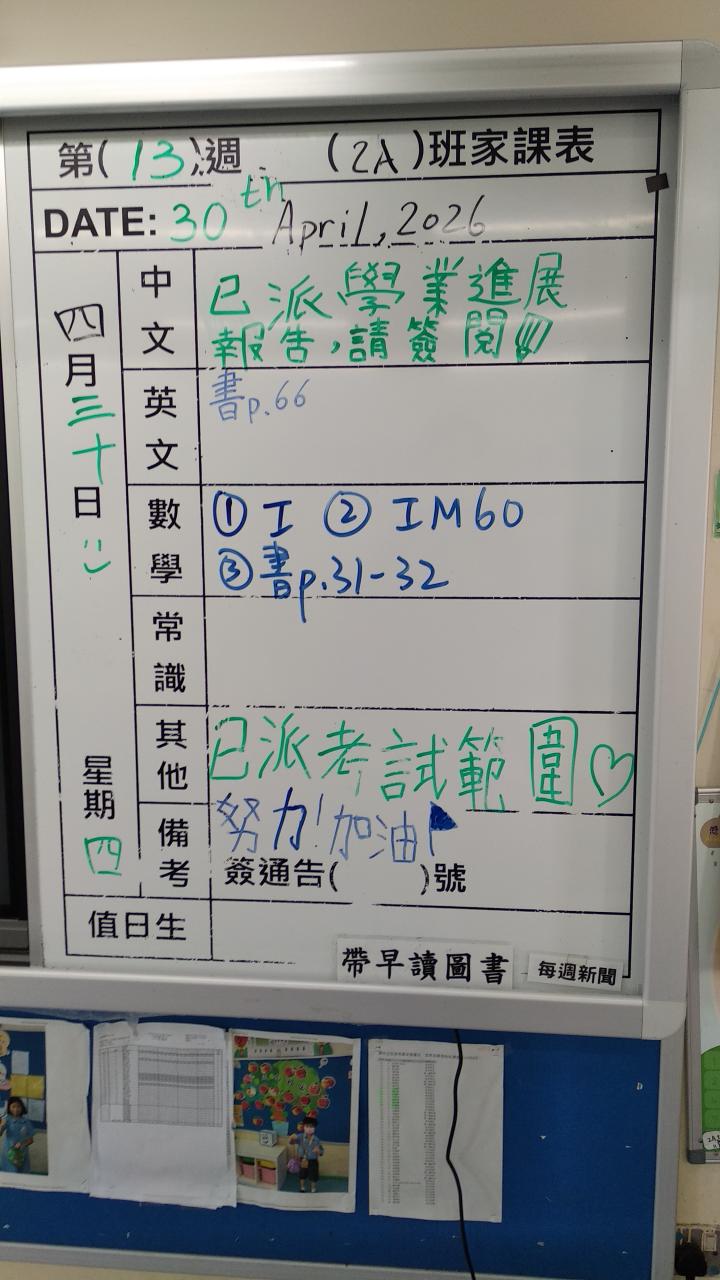 第(13)週 (2A)班家課表
DATE: 30th April, 2026
四月三十日 星期四
中文 已派學業進展
報告,請簽閱!!!
英文 書p.66
數學 ① I ② IM60
③ 書p.31-32
常識
其他 已派考試範圍♡
備考 努力!加油!
簽通告( )號
值日生
帶早讀圖書 每週新聞